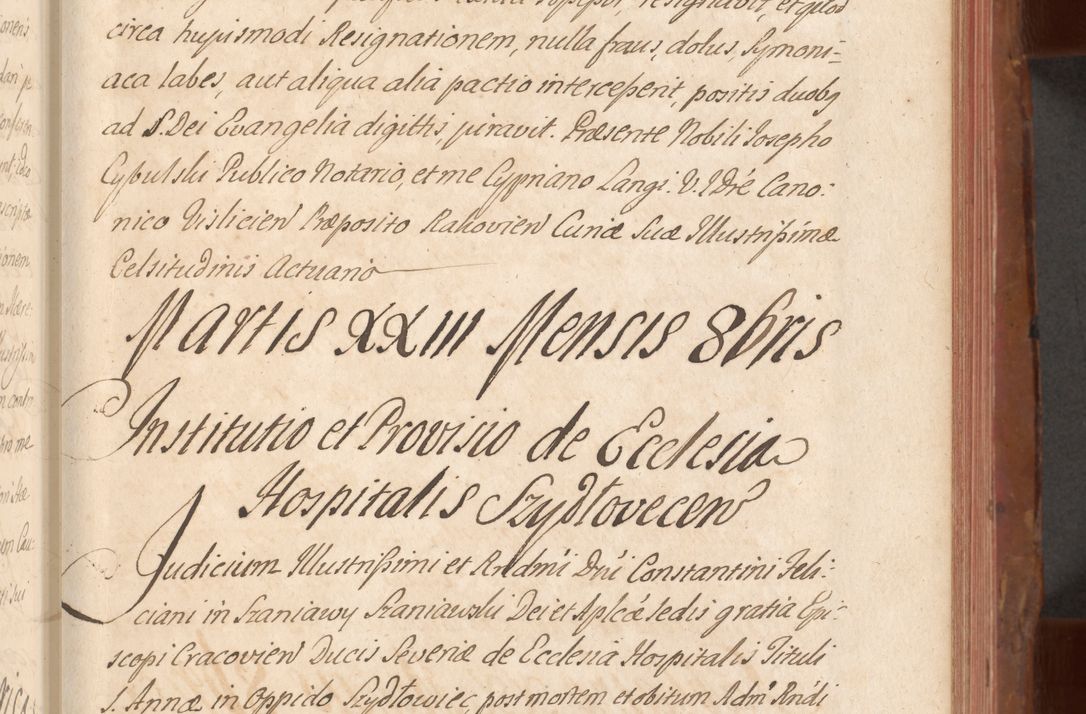 resignavit, et quod
circa hujusmodi Resignationem, nulla fraus, dolus, Symoni=
aca labes, aut aliqua alia pactio intercesserit, positis duobq
ad S. Dei Evangelia digittis juravit. Præsente Nobili Josepho
Cybulski Publico Notario, et me Cypriano Langi. V. I. Dre Cano:
nico Vislicien Præposito Rakovien Curiæ Suæ Illustrissimæ
Celsitudinis Actuario
Martis XXIII Mensis 8bris
Institutio et Provisio de Ecclesia
Hospitalis Szydłovecen
Judicium Illustrissimi et Rndmi Dni Constantini Feli:
ciani in Szaniawy Szaniawski Dei et Aplcæ sedis gratia Epi:
scopi Cracovien Ducis Severiæ de Ecclesia Hospitalis Tituli
S. Annæ in Oppido Szydłowiec, post mortem et obitum Adm Rndi